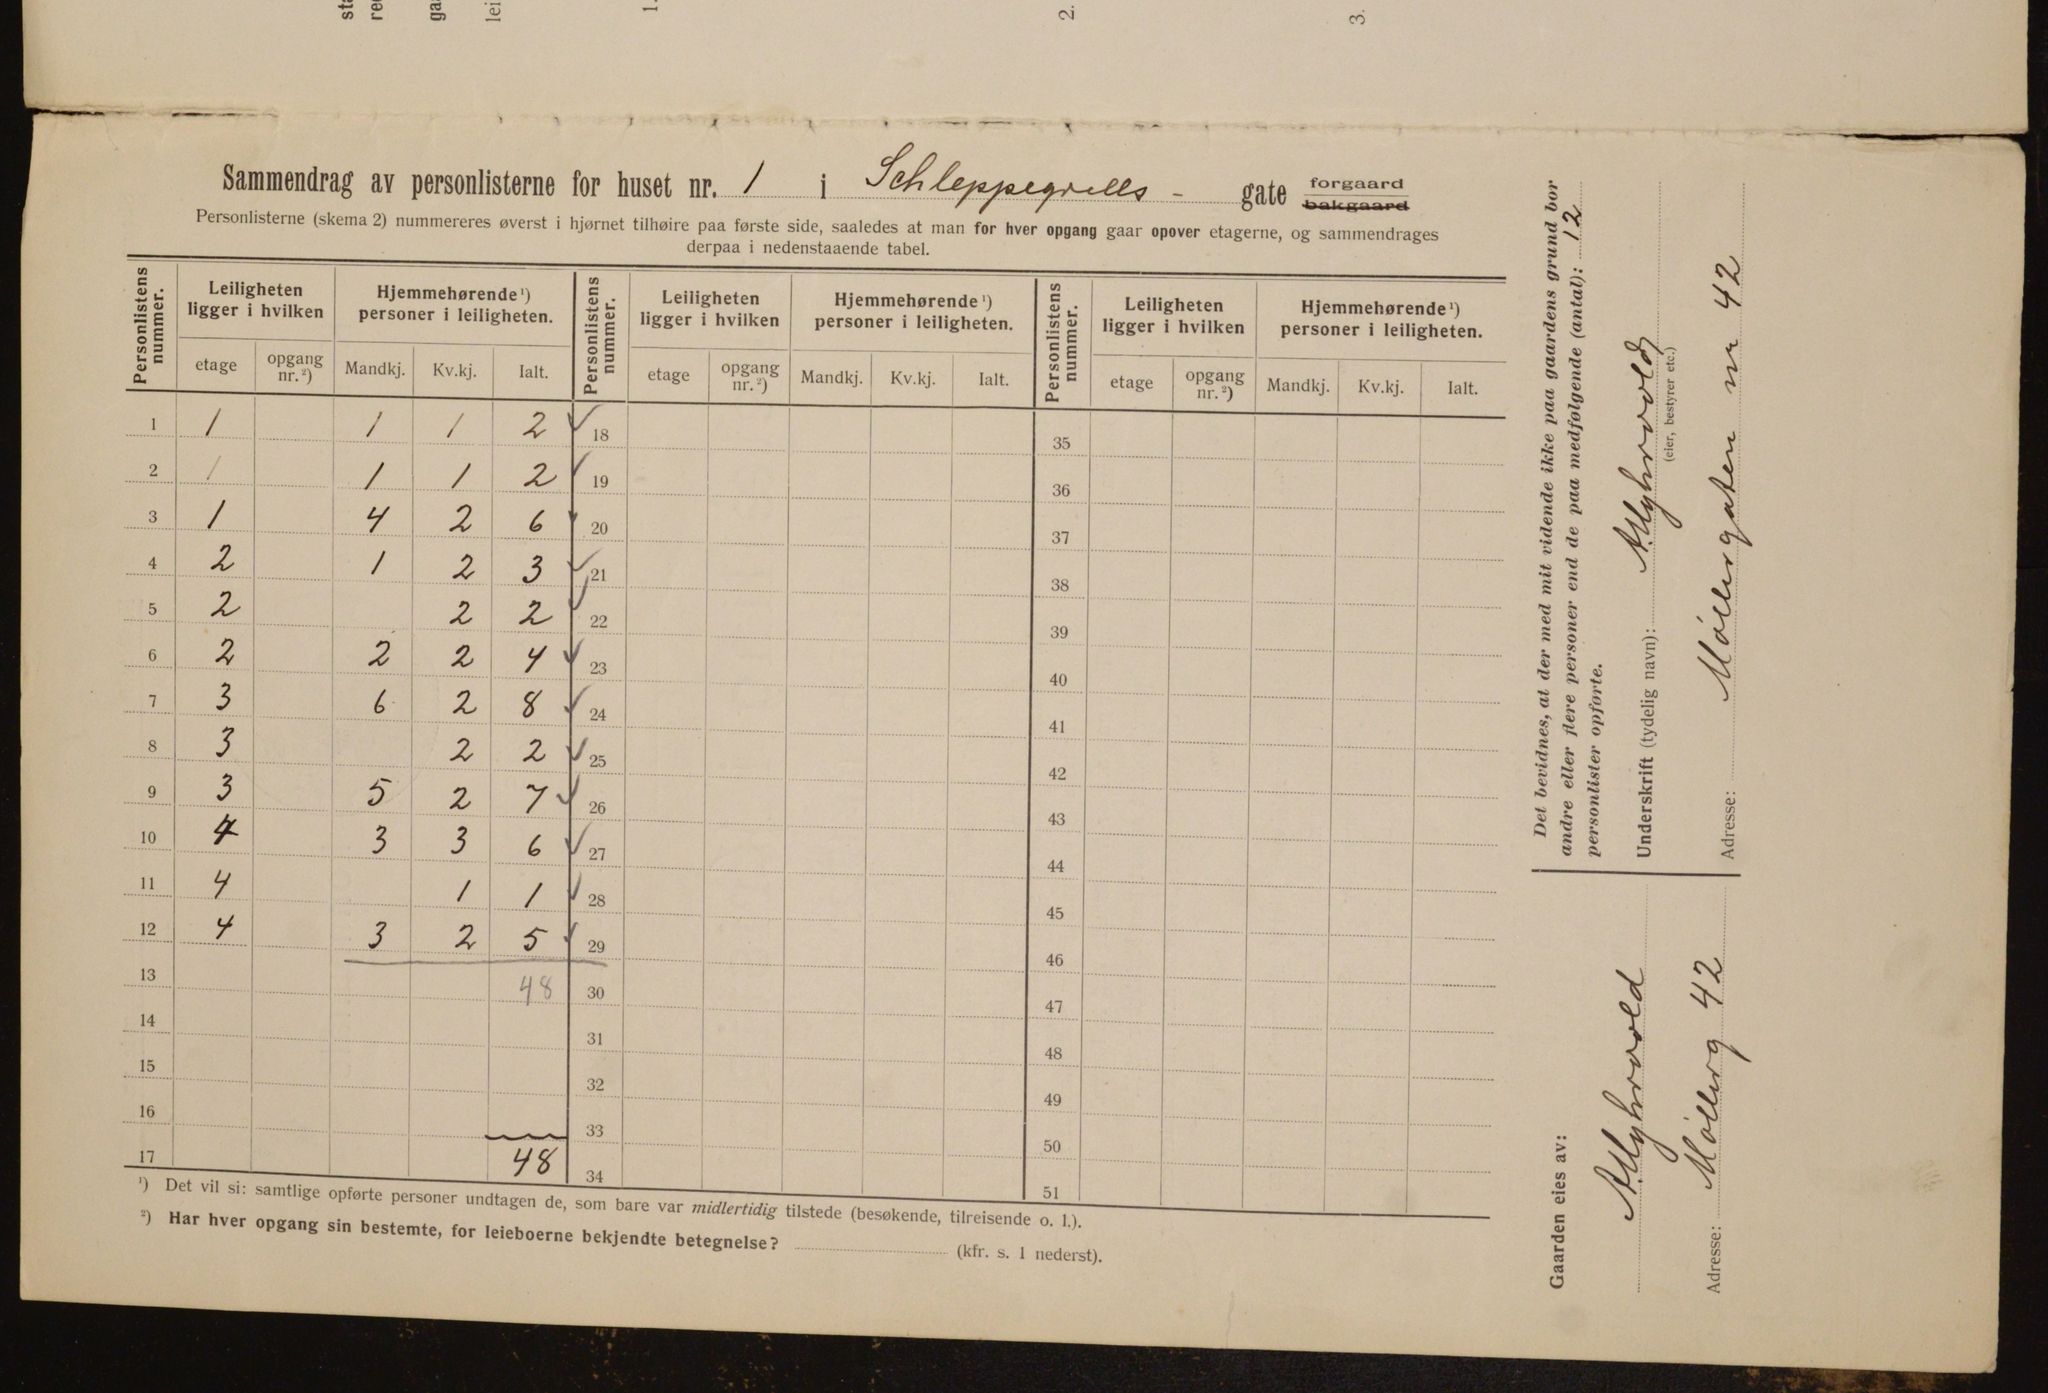 sta
red
gaa
lei
1.
2.
3.
Sammendrag av personlisterne for huset nr. 1 i Schleppegrells - gate forgaard bakgaard
Personlisterne (skema 2) nummereres øverst i hjørnet tilhøire paa første side, saaledes at man for hver opgang gaar opover etagerne, og sammendrages
derpaa i nedenstaaende tabel.
Personlistens nummer. Leiligheten ligger i hvilken Hjemmehørende ¹) personer i leiligheten. Personlistens nummer. Leiligheten ligger i hvilken Hjemmehørende ¹) personer i leiligheten. Personlistens nummer. Leiligheten ligger i hvilken Hjemmehørende ¹) personer i leiligheten.
etage opgang nr. ²) Mandkj. Kv.kj. Ialt. etage opgang nr. ²) Mandkj. Kv.kj. Ialt. etage opgang nr. ²) Mandkj. Kv.kj. Ialt.
1 1 1 1 2 ✓ 18 35
2 1 1 1 2 ✓ 19 36
3 1 4 2 6 ✓ 20 37
4 2 1 2 3 ✓ 21 38
5 2 2 2 ✓ 22 39
6 2 2 2 4 ✓ 23 40
7 3 6 2 8 ✓ 24 41
8 3 2 2 ✓ 25 42
9 3 5 2 7 ✓ 26 43
10 4 3 3 6 ✓ 27 44
11 4 1 1 ✓ 28 45
12 4 3 2 5 ✓ 29 46
13 48 30 47
14 31 48
15 32 49
16 33 50
17 48 34 51
¹) Det vil si: samtlige opførte personer undtagen de, som bare var midlertidig tilstede (besøkende, tilreisende o. l.).
²) Har hver opgang sin bestemte, for leieboerne bekjendte betegnelse? (kfr. s. 1 nederst).
Det bevidnes, at der med mit vidende ikke paa gaardens grund bor
andre eller flere personer end de paa medfølgende (antal): 12
personlister opførte.
Underskrift (tydelig navn): A. Myhrvold
(eier, bestyrer etc.)
Adresse: Møllergaten nr 42
Gaarden eies av:
A. Myhrvold
Adresse: Møllerg 42